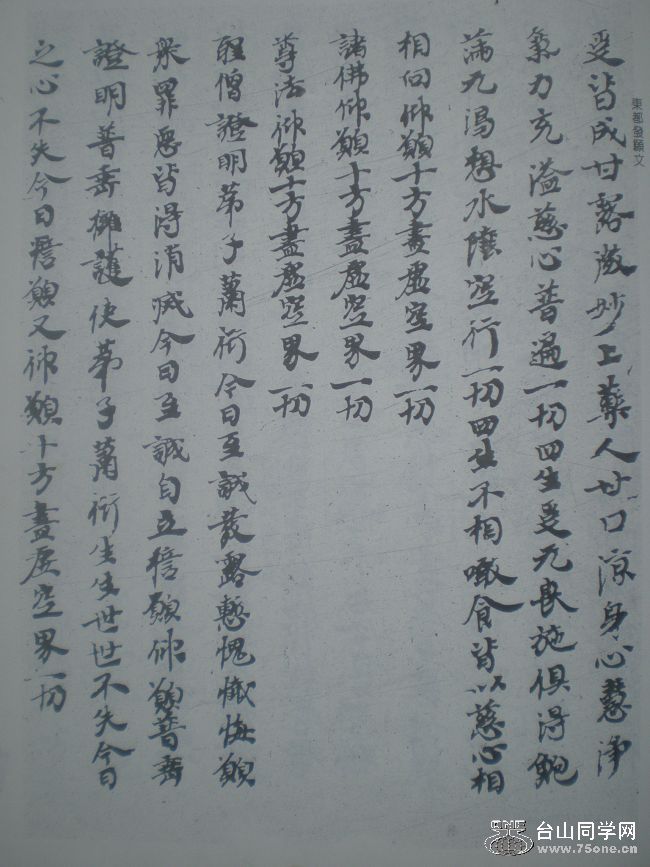 東都發願文
受皆成甘露微妙上藥人甘口涼身心慧淨
氣力充溢慈心普遍一切四生受无畏施俱得飽
滿无渴想水陸空行一切四生不相噉食皆以慈心相
相向仰願十方盡虛空界一切
諸佛仰願十方盡虛空界一切
尊法仰願十方盡虛空界一切
聖僧證明弟子蕭衍今日至誠發露慙愧懺悔願
衆罪惡皆得消滅今日至誠自立誓願仰願普垂
證明普垂擁護使弟子蕭衍生生世世不失今日
之心不失今日誓願又仰願十方盡虛空界一切
ONE
台山同学网
www.75one.cn